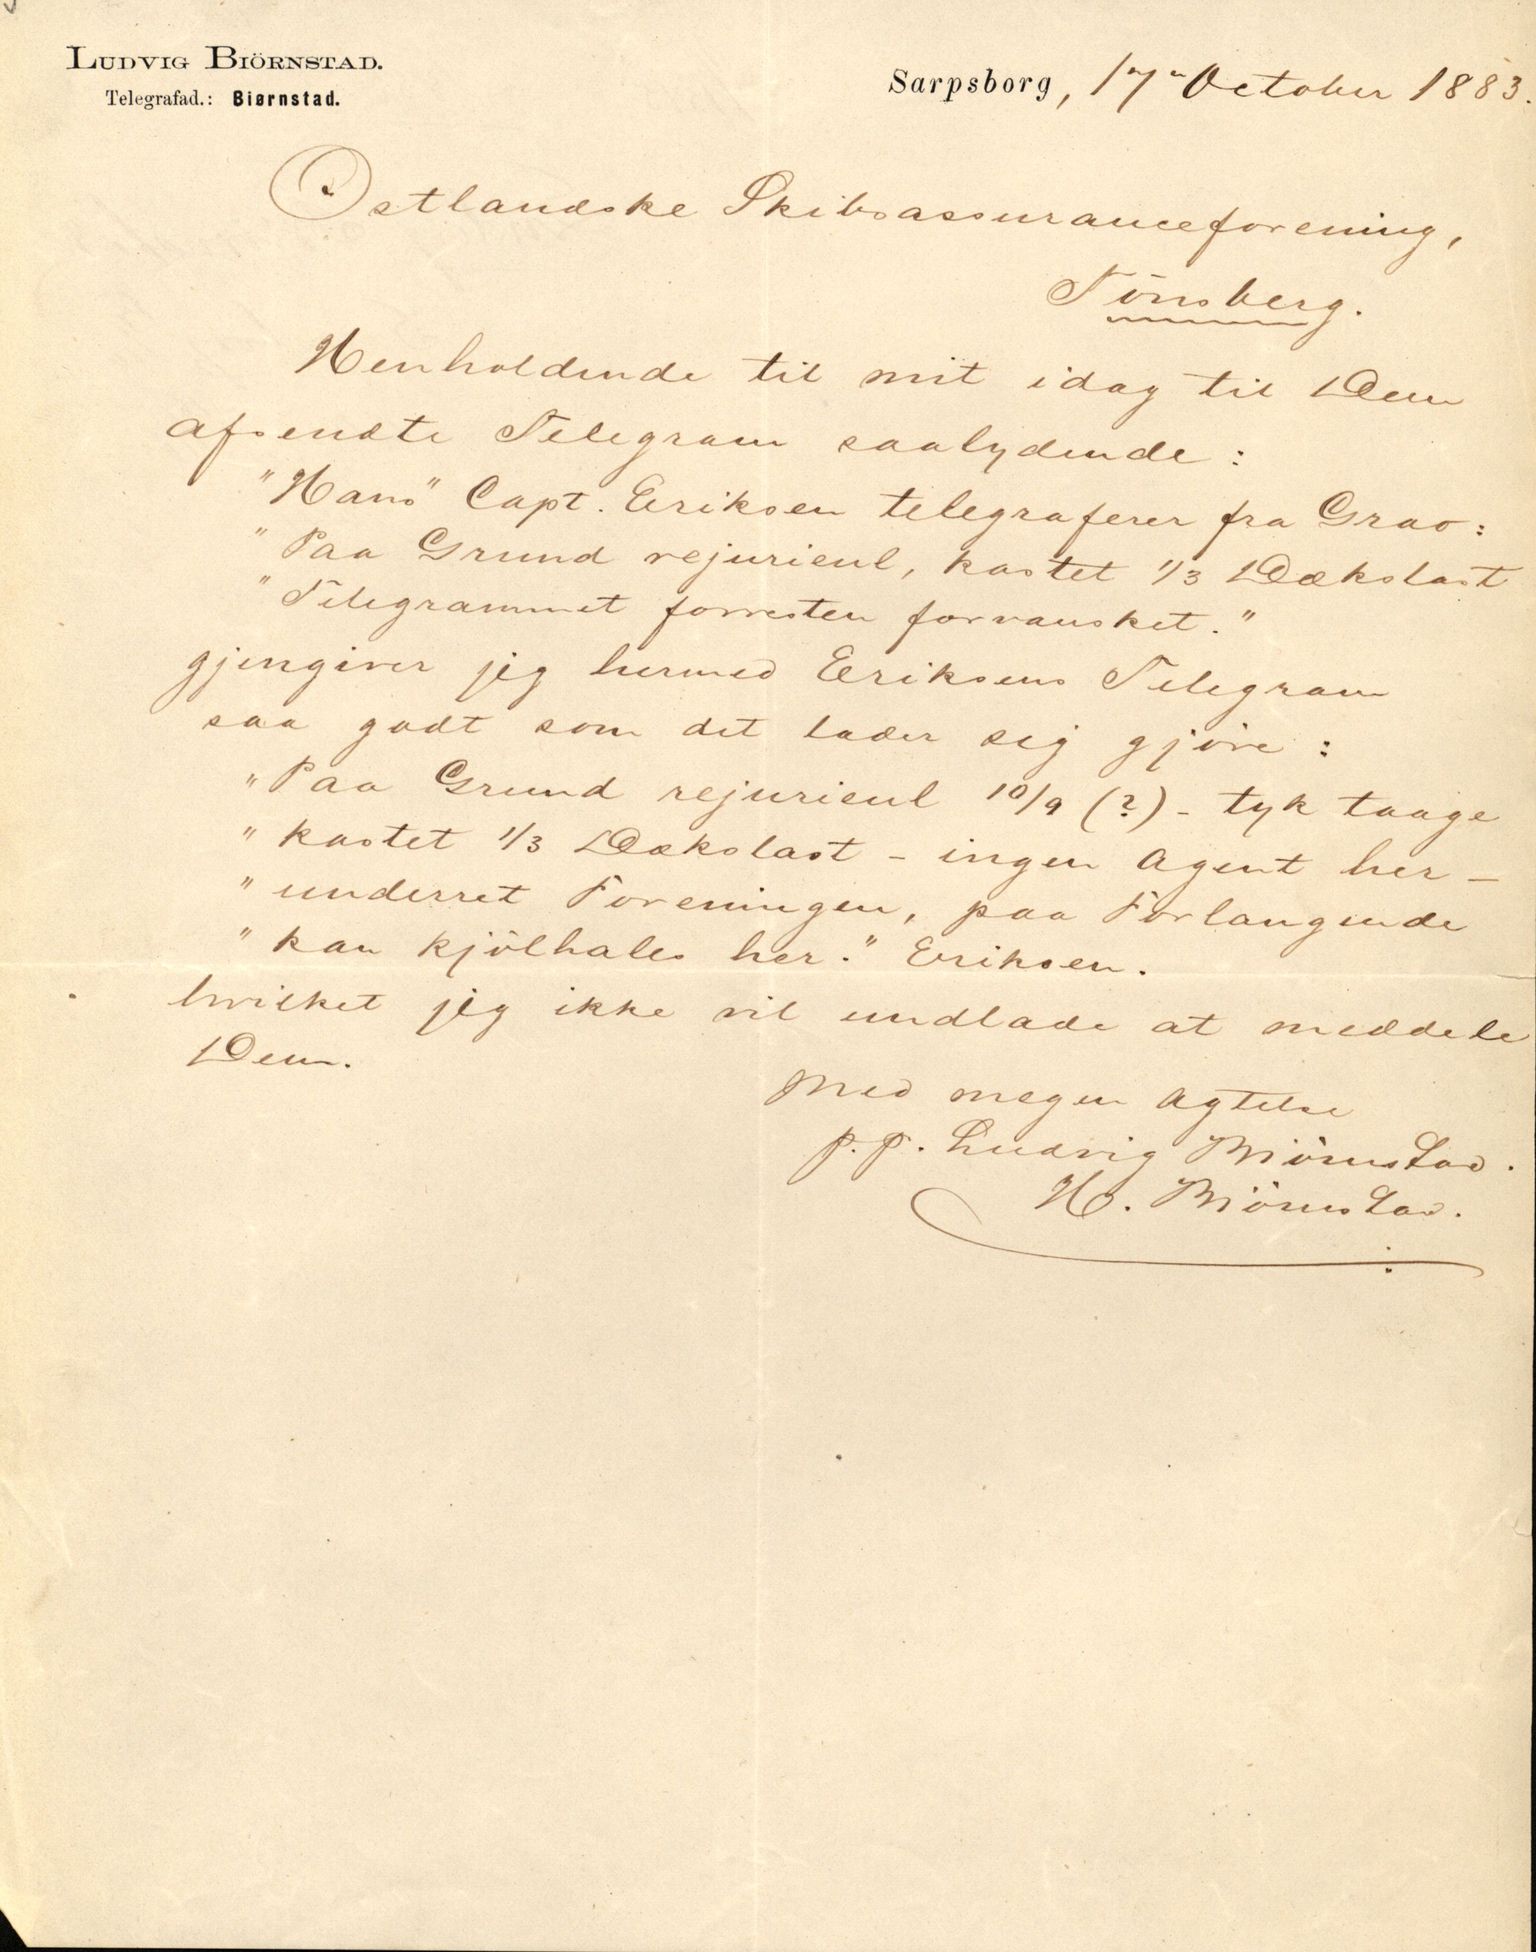 LUDVIG BIÖRNSTAD.
Telegrafad.: Biørnstad.
Sarpsborg, 17 October 1883.
Östlandske Skibsassuranceforening,
Tönsberg.
Henholdende til mit idag til Dem
afsendte Telegram saalydende:
"Hans" Capt. Eriksen telegraferer fra Grao:
"Paa Grund rejurieul, kastet 1/3 Dækslast
"Telegrammet forresten forvansket."
gjengiver jeg hermed Eriksens Telegram
saa godt som det lader sig gjöre:
"Paa Grund rejurieul 10/9 (?) - tyk taage
"kastet 1/3 Dækslast - ingen Agent her -
"underret Foreningen, paa Forlangende
"kan kjölhales her." Eriksen.
hvilket jeg ikke vil undlade at meddele
Dem.
Med megen Agtelse
p.p. Ludvig Biörnstad.
H. Biörnstad.